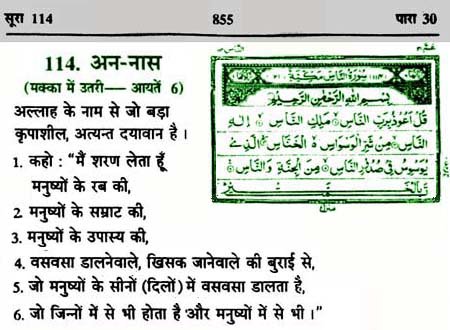 सूरा 114 855 पारा 30
114. अन-नास
(मक्का में उतरी— आयतें 6)
अल्लाह के नाम से जो बड़ा
कृपाशील, अत्यन्त दयावान है ।
1. कहो : "मैं शरण लेता हूँ
मनुष्यों के रब की,
2. मनुष्यों के सम्राट की,
3. मनुष्यों के उपास्य की,
سورة الناس مكية
بسم الله الرحمن الرحيم
قل اعوذ برب الناس ملك الناس اله
الناس من شر الوسواس الخناس الذي
يوسوس في صدور الناس من الجنة والناس
4. वसवसा डालनेवाले, खिसक जानेवाले की बुराई से,
5. जो मनुष्यों के सीनों (दिलों) में वसवसा डालता है,
6. जो जिन्नों में से भी होता है और मनुष्यों में से भी ।"